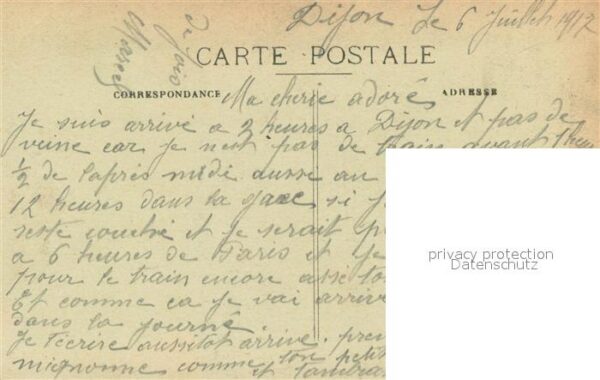 Dijon Le 6 Juillet 1917
je suis
Marcel
CARTE POSTALE
CORRESPONDANCE
ADRESSE
Ma cherie adoré
Je suis arrivé a 2 heures a Dijon et pas de
veine car je neut pas de train avant 1 heure
½ de laprés midi ausse au
12 heures dans la gare si j
reste couché et je serait
a 6 heures de Paris et je
pour le train encore asse
Et comme ca je vai arrive
dans la journé
Je técrire aussitot arrivé.
mignonne comme ton petit
et
privacy protection
Datenschutz